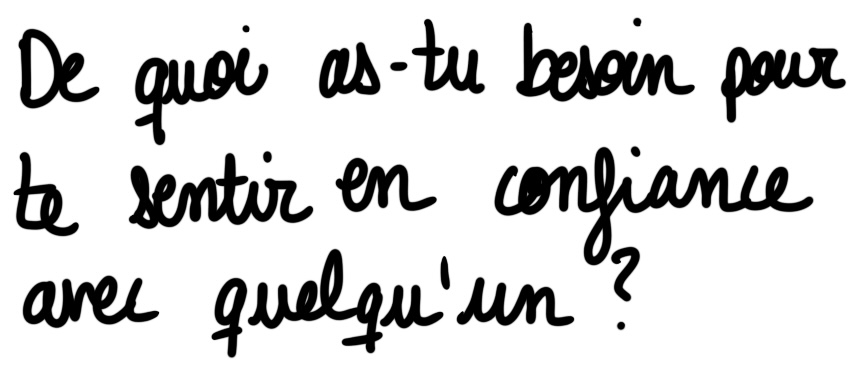 De quoi as-tu besoin pour
te sentir en confiance
avec quelqu'un ?